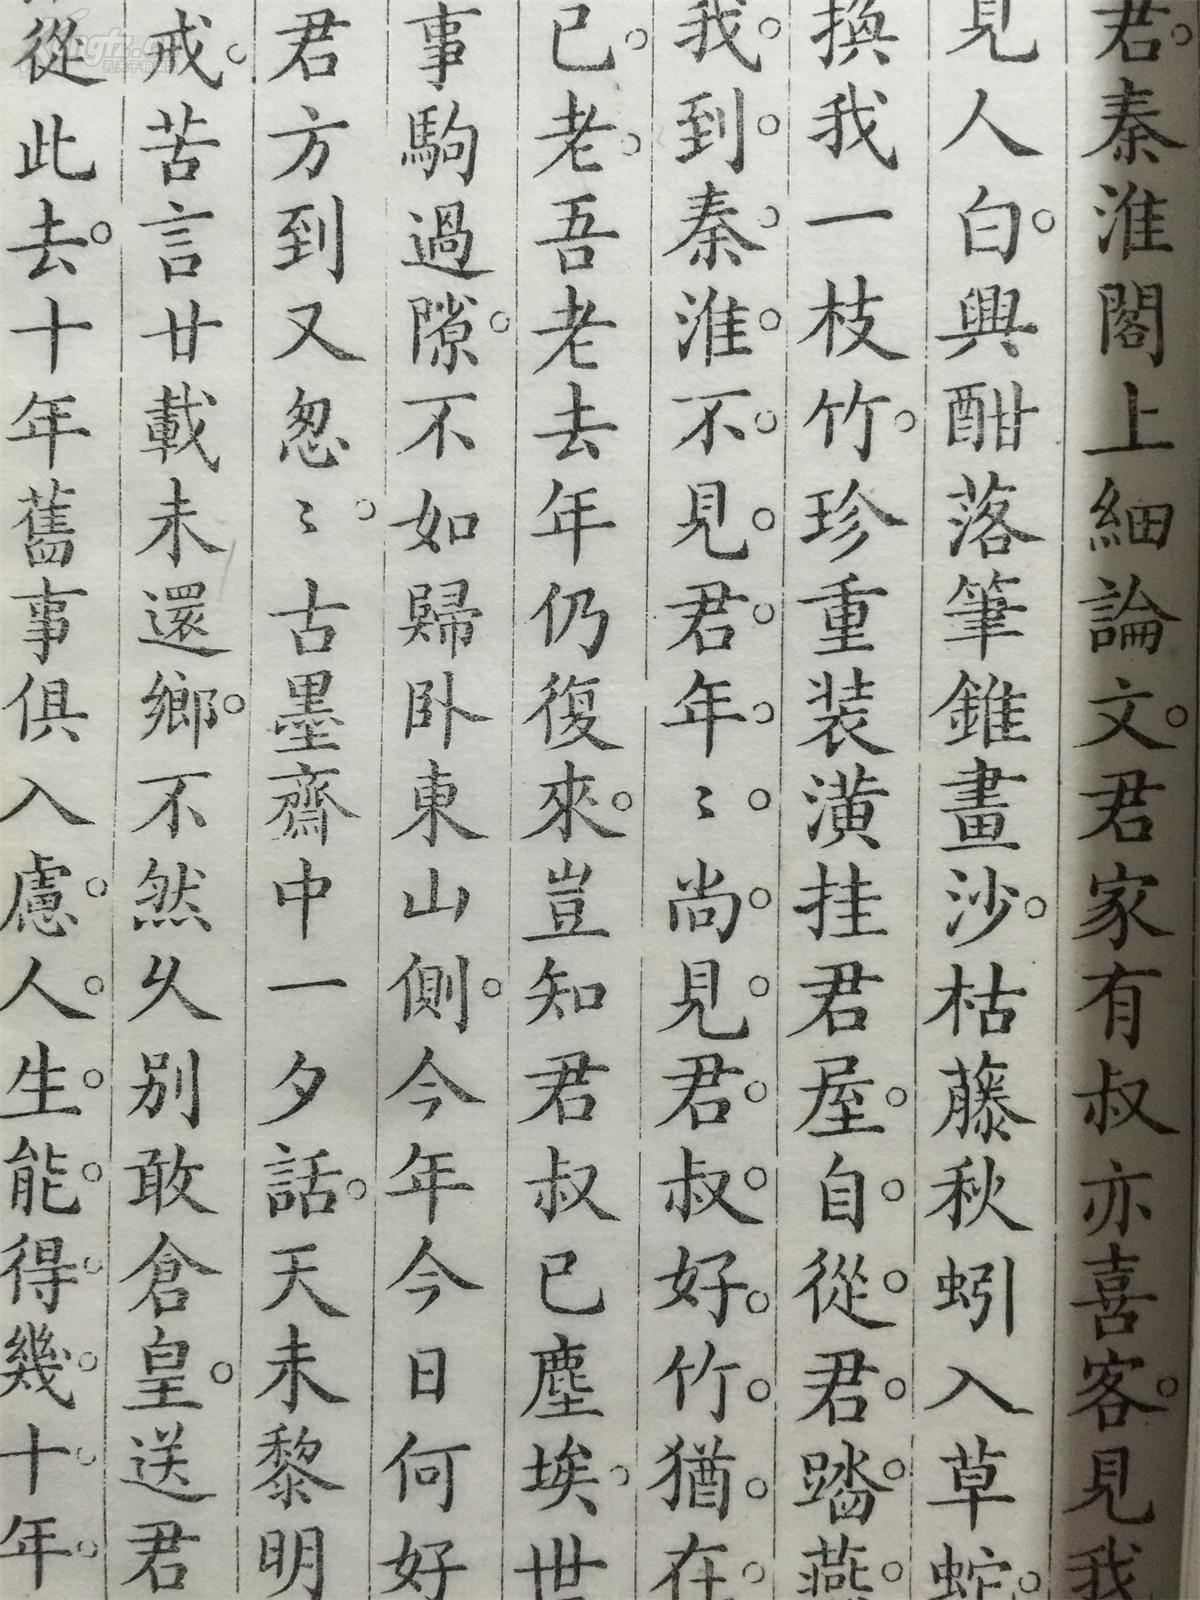 君秦淮閣上細論文君家有叔亦喜客見我
見人白興酣落筆錐畫沙枯藤秋蚓入草蛇
換我一枝竹珍重装潢挂君屋自從君踏燕
我到秦淮不見君年〻尚見君叔好竹猶在
已老吾老去年仍復來豈知君叔已塵埃世
事駒過隙不如歸卧東山側今年今日何好
君方到又怱〻古墨齋中一夕話天未黎明
戒苦言廿載未還鄉不然久別敢倉皇送君
從此去十年舊事俱入慮人生能得幾十年